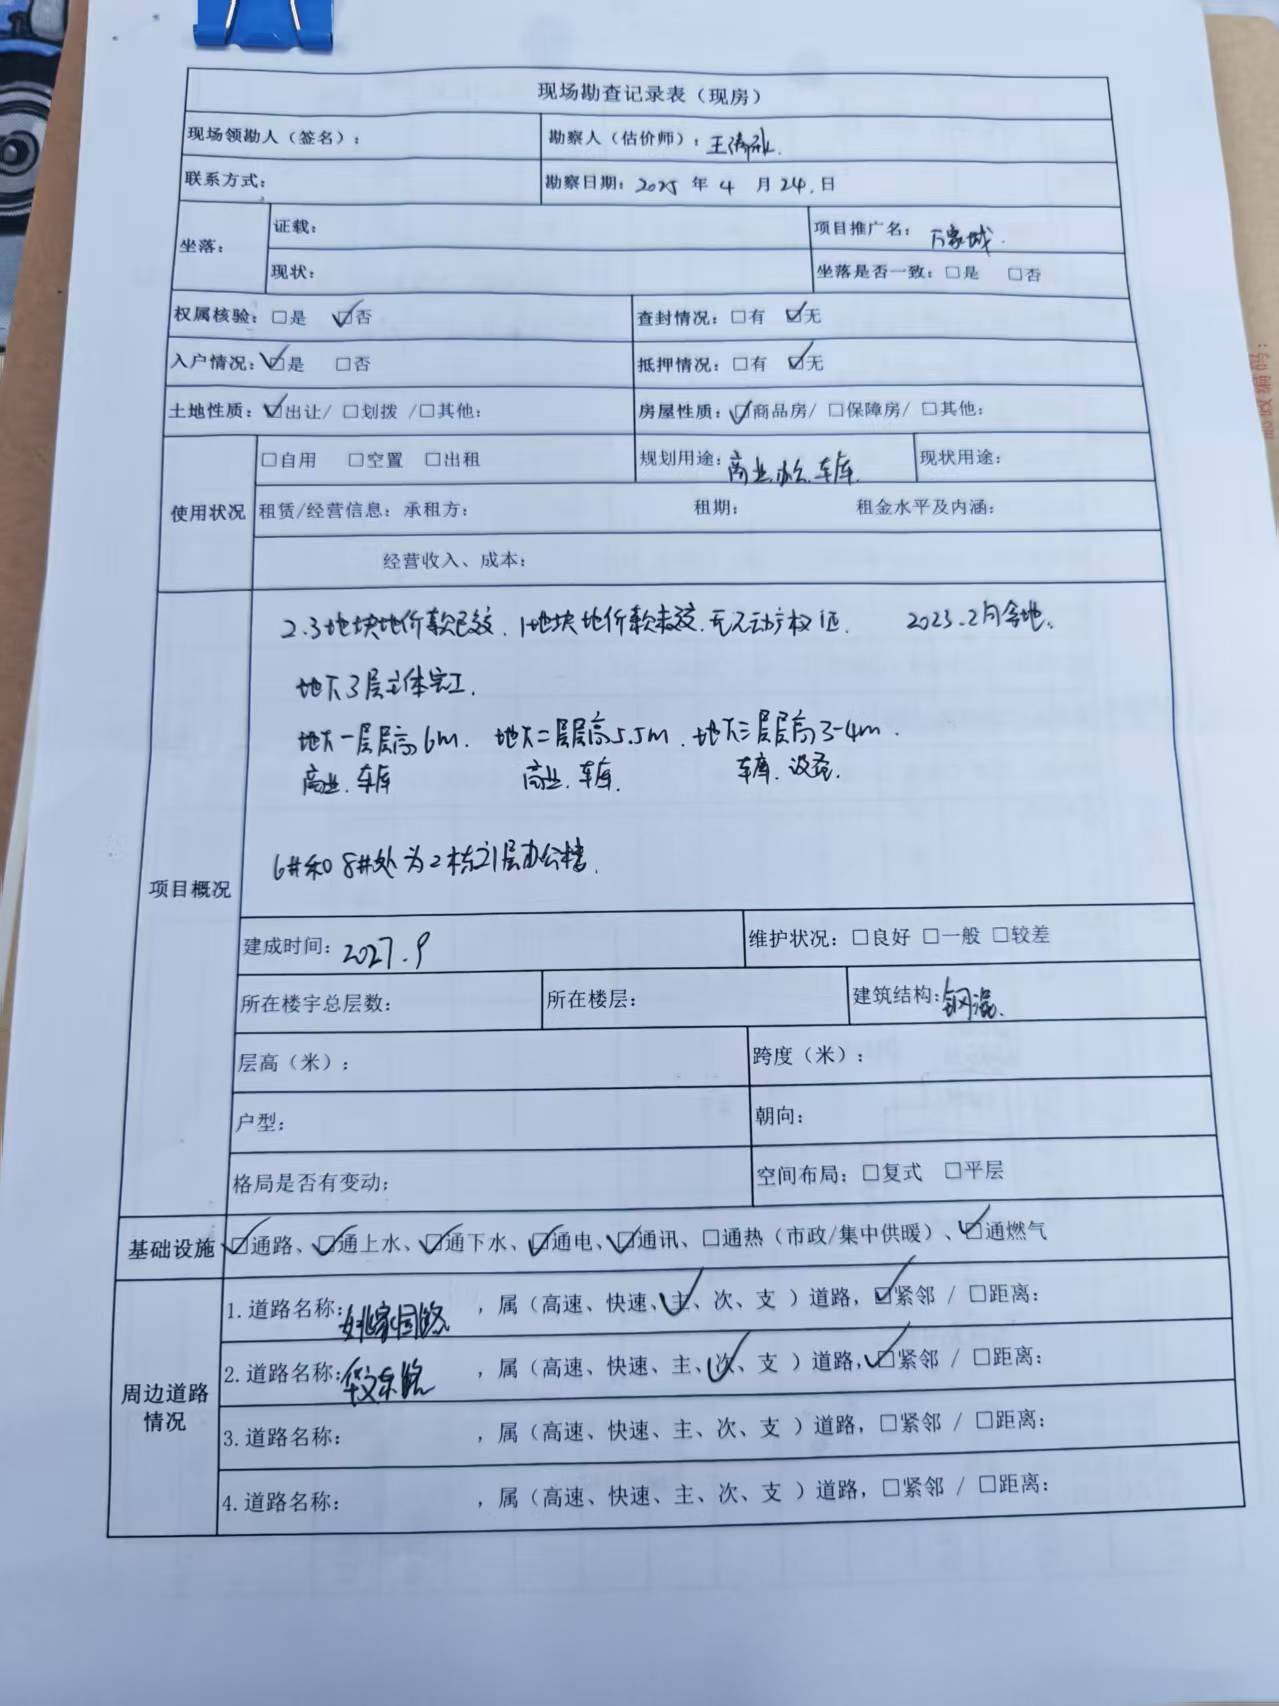 现场勘查记录表（现房）
现场领勘人（签名）： 勘察人（估价师）：王
联系方式： 勘察日期：2025 年 4 月 24.日
坐落： 证载： 项目推广名：万家城.
现状： 坐落是否一致：□是 □否
权属核验：□是 ☑否 查封情况：□有 ☑无
入户情况：☑是 □否 抵押情况：□有 ☑无
土地性质：☑出让/ □划拨 /□其他： 房屋性质：☑商品房/ □保障房/ □其他：
使用状况 □自用 □空置 □出租 规划用途：商业.办公.车库. 现状用途：
租赁/经营信息：承租方： 租期： 租金水平及内涵：
经营收入、成本：
项目概况
2.3地块地价款已缴.1地块地价款未缴.无不动产权证. 2023.2月拿地.
地下3层主体完工.
地下一层层高6m. 地下二层层高5.5m.地下三层层高3-4m.
商业.车库 商业.车库. 车库.设备.
6#和8#处为2栋 层办公楼.
建成时间：2027.9 维护状况：□良好 □一般 □较差
所在楼宇总层数： 所在楼层： 建筑结构：钢混.
层高（米）： 跨度（米）：
户型： 朝向：
格局是否有变动： 空间布局：□复式 □平层
基础设施 ☑通路、☑通上水、☑通下水、☑通电、☑通讯、□通热（市政/集中供暖）、☑通燃气
周边道路情况
1.道路名称：姚家园路 ，属（高速、快速、主、次、支 ）道路，☑紧邻 / □距离：
2.道路名称： 东路 ，属（高速、快速、主、次、支 ）道路，☑紧邻 / □距离：
3.道路名称： ，属（高速、快速、主、次、支 ）道路，□紧邻 / □距离：
4.道路名称： ，属（高速、快速、主、次、支 ）道路，□紧邻 / □距离：